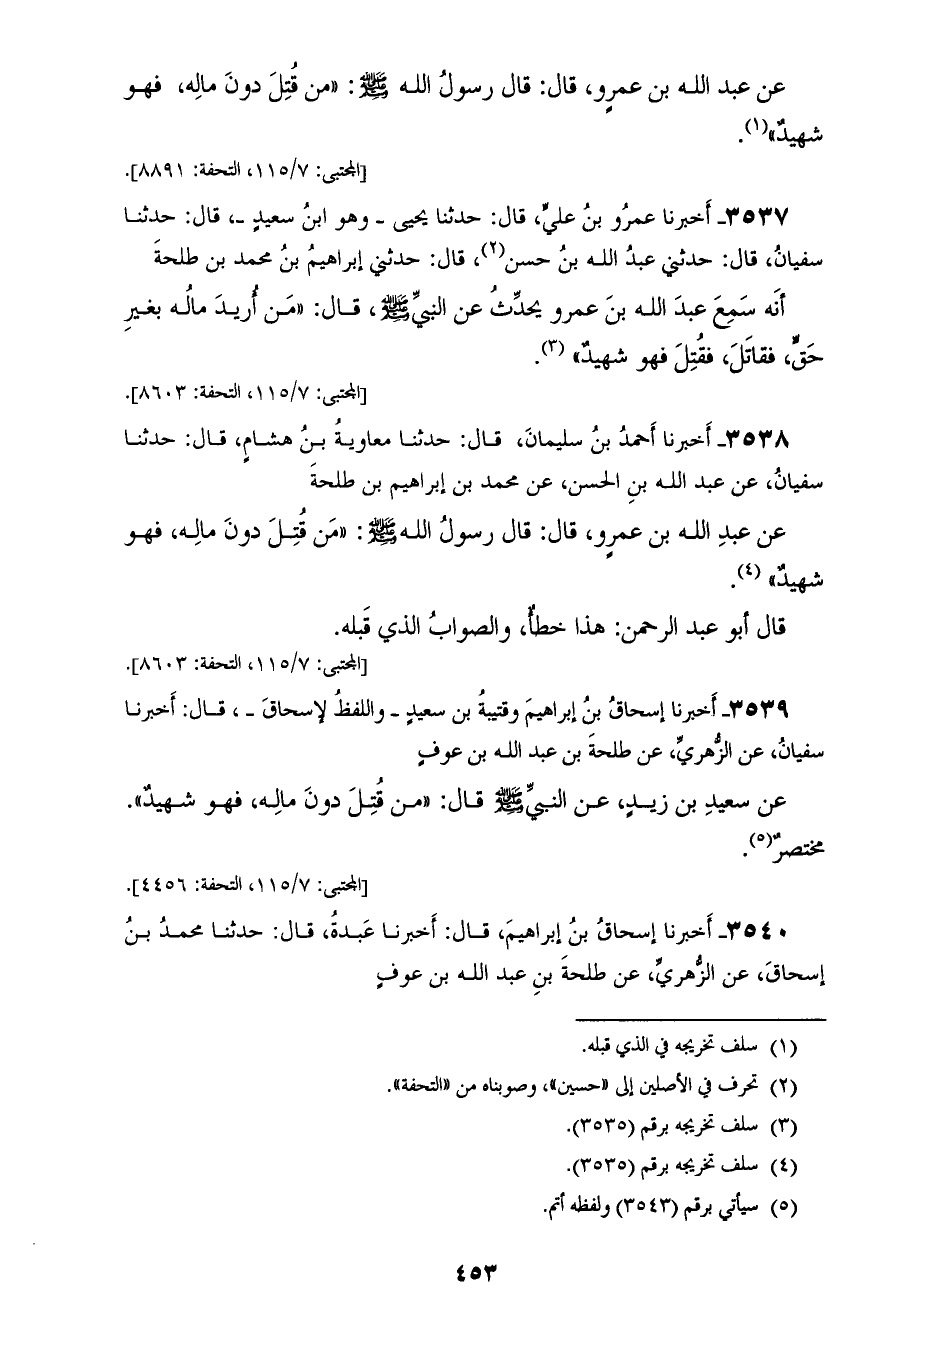 عن عبد الله بن عمرٍو، قال: قال رسولُ الله ﷺ: «من قُتِلَ دونَ مالِه، فهو
شهيدٌ»(١).
[المجتبى: ١١٥/٧، التحفة: ٨٨٩١].
٣٥٣٧ـ أَخبرنا عمرُو بنُ عليٍّ، قال: حدثنا يحيى ـ وهو ابنُ سعيدٍ ـ، قال: حدثنا
سفيانُ، قال: حدثني عبدُ الله بنُ حسن(٢)، قال: حدثني إبراهيمُ بنُ محمد بن طلحةَ
أَنَّه سَمِعَ عبدَ الله بنَ عمرو يحدِّثُ عن النبيِّ ﷺ، قال: «مَن أُريدَ مالُه بغيرِ
حَقٍّ، فقاتَلَ، فقُتِلَ فهو شهيدٌ» (٣).
[المجتبى: ١١٥/٧، التحفة: ٨٦٠٣].
٣٥٣٨ـ أَخبرنا أَحمدُ بنُ سليمانَ، قال: حدثنا معاويةُ بنُ هشامٍ، قال: حدثنا
سفيانُ، عن عبد الله بنِ الحسن، عن محمد بن إبراهيم بن طلحةَ
عن عبدِ الله بن عمرٍو، قال: قال رسولُ الله ﷺ: «مَن قُتِلَ دونَ مالِه، فهو
شهيدٌ» (٤).
قال أبو عبد الرحمن: هذا خطأٌ، والصوابُ الذي قَبله.
[المجتبى: ١١٥/٧، التحفة: ٨٦٠٣].
٣٥٣٩ـ أَخبرنا إسحاقُ بنُ إبراهيمَ وقتيبةُ بن سعيدٍ ـ واللفظُ لإسحاقَ ـ ، قال: أَخبرنا
سفيانُ، عن الزُّهريِّ، عن طلحةَ بن عبد الله بن عوفٍ
عن سعيدِ بن زيدٍ، عن النبيِّ ﷺ قال: «من قُتِلَ دونَ مالِه، فهو شهيدٌ».
مختصرٌ(٥).
[المجتبى: ١١٥/٧، التحفة: ٤٤٥٦].
٣٥٤٠ـ أَخبرنا إسحاقُ بنُ إبراهيمَ، قال: أَخبرنا عَبدةُ، قال: حدثنا محمدُ بنُ
إسحاقَ، عن الزُّهريِّ، عن طلحةَ بنِ عبد الله بن عوفٍ
(١) سلف تخريجه في الذي قبله.
(٢) تحرف في الأصلين إلى «حسين»، وصوبناه من «التحفة».
(٣) سلف تخريجه برقم (٣٥٣٥).
(٤) سلف تخريجه برقم (٣٥٣٥).
(٥) سيأتي برقم (٣٥٤٣) ولفظه أتم.
٤٥٣